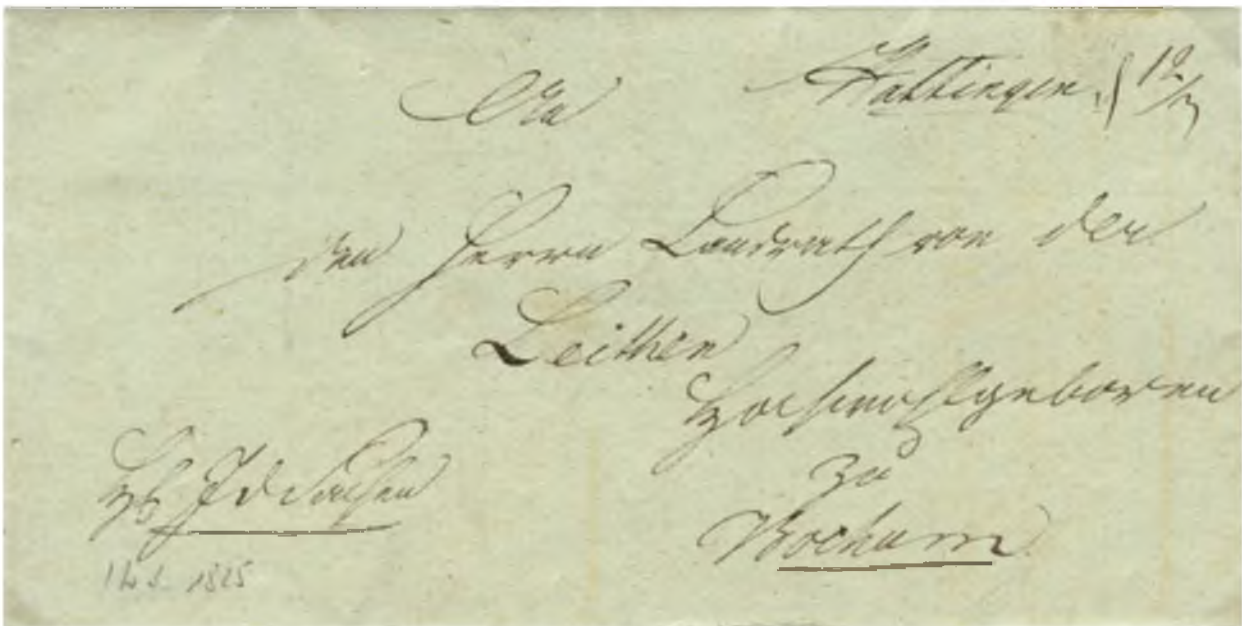 An
Hattingen, 12/3
den Herrn Landrath von der
Leithen
Hochwohlgeboren
zu
Bochum
H S J d Sachen
1825